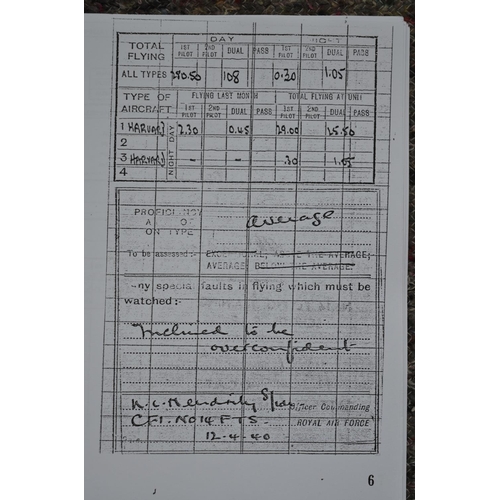 DAY NIGHT
TOTAL FLYING 1ST PILOT 2ND PILOT DUAL PASS 1ST PILOT 2ND PILOT DUAL PASS
ALL TYPES 280.50 108 0.30 1.05
TYPE OF AIRCRAFT FLYING LAST MONTH TOTAL FLYING AT UNIT
DAY NIGHT 1ST PILOT 2ND PILOT DUAL PASS 1ST PILOT 2ND PILOT DUAL PASS
1 HARVARD 2.30 0.45 29.00 25.50
2
3 HARVARD - - .30 1.05
4
PROFICIENCY average
A OF
ON TYPE
To be assessed:- EXCEPTIONAL, ABOVE THE AVERAGE;
AVERAGE; BELOW THE AVERAGE.
ny special faults in flying which must be
watched:-
Inclined to be
overconfident
Officer Commanding
CFI. No 14 FTS. ROYAL AIR FORCE
12-4-40
6